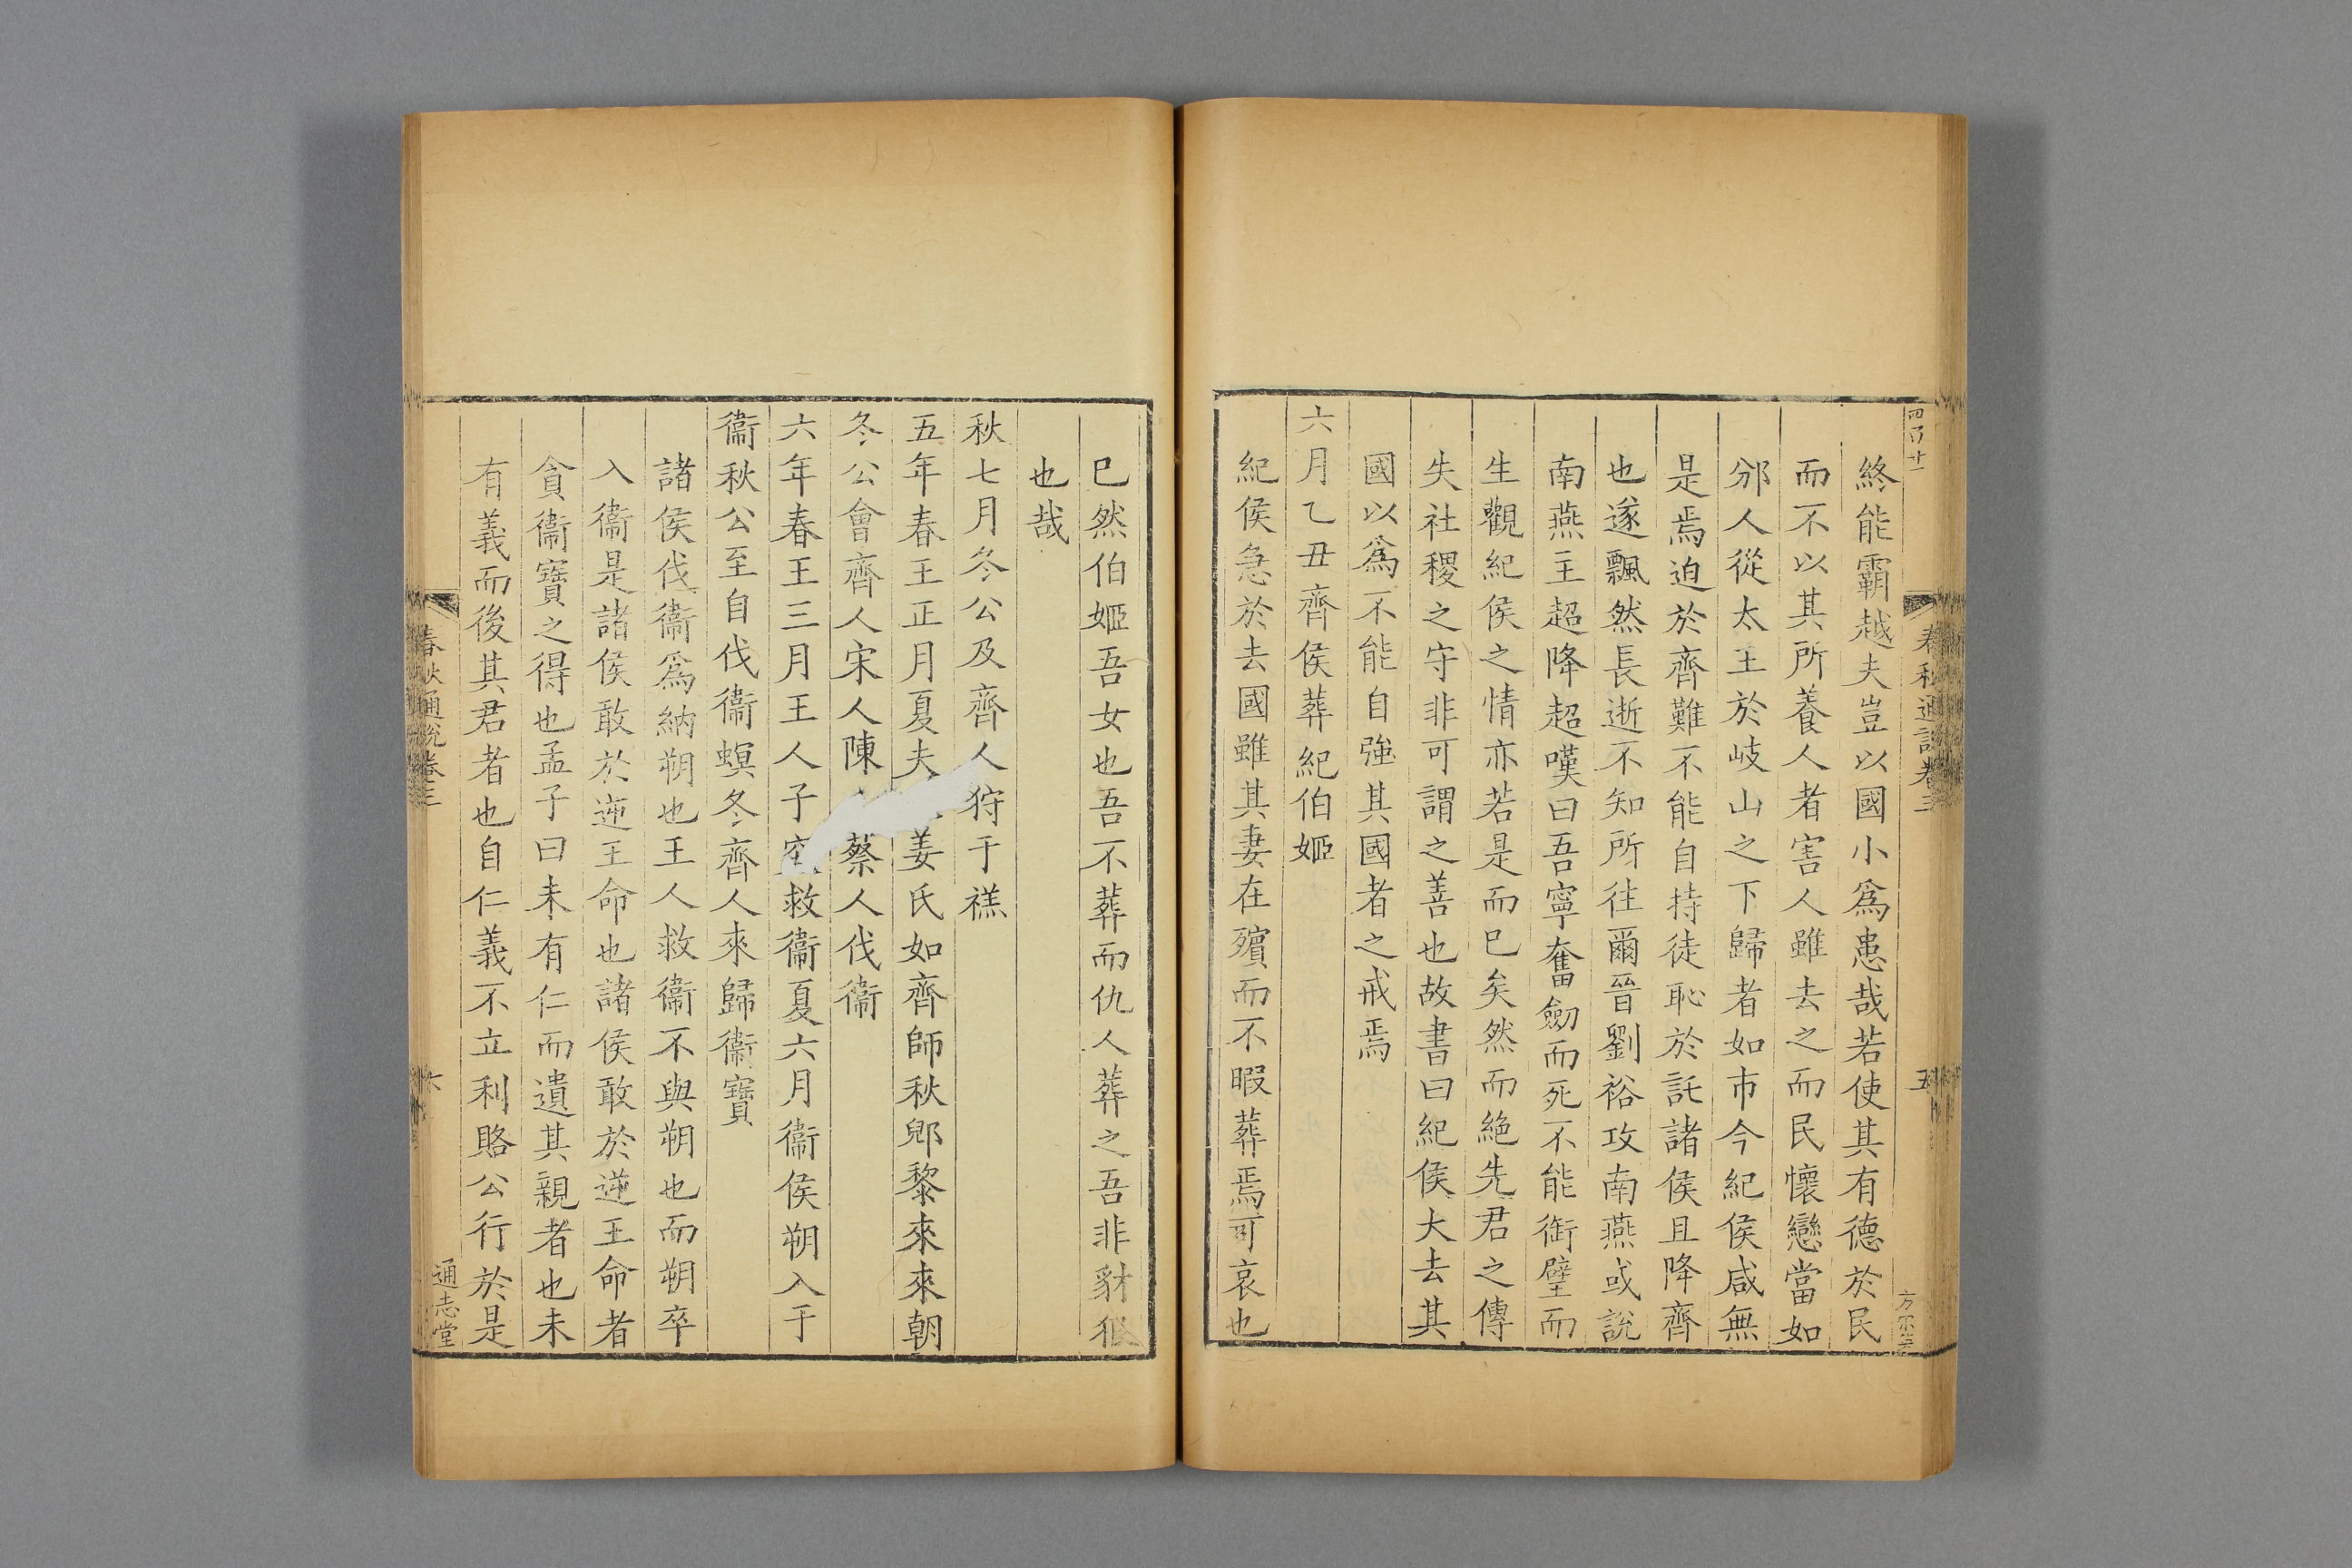 終能霸越夫豈以國小爲患哉若使其有德於民
而不以其所養人者害人雖去之而民懷戀當如
邠人從太王於岐山之下歸者如市今紀侯咸無
是焉迫於齊難不能自持徒恥於託諸侯且降齊
也遂飄然長逝不知所往爾晉劉裕攻南燕或說
南燕主超降超嘆曰吾寧奮劒而死不能銜璧而
生觀紀侯之情亦若是而巳矣然而絶先君之傳
失社稷之守非可謂之善也故書曰紀侯大去其
國以爲不能自強其國者之戒焉
六月乙丑齊侯葬紀伯姬
紀侯急於去國雖其妻在殯而不暇葬焉可哀也
春秋通說卷三
五
巳然伯姬吾女也吾不葬而仇人葬之吾非豺狠
也哉
秋七月冬公及齊人狩于禚
五年春王正月夏夫姜氏如齊師秋郳黎來來朝
冬公會齊人宋人陳蔡人伐衞
六年春王三月王人子救衞夏六月衞侯朔入于
衞秋公至自伐衞螟冬齊人來歸衞寶
諸侯伐衞爲納朔也王人救衞不與朔也而朔卒
入衞是諸侯敢於逆王命也諸侯敢於逆王命者
貪衞寶之得也孟子曰未有仁而遺其親者也未
有義而後其君者也自仁義不立利賂公行於是
春秋通說卷三
六
通志堂